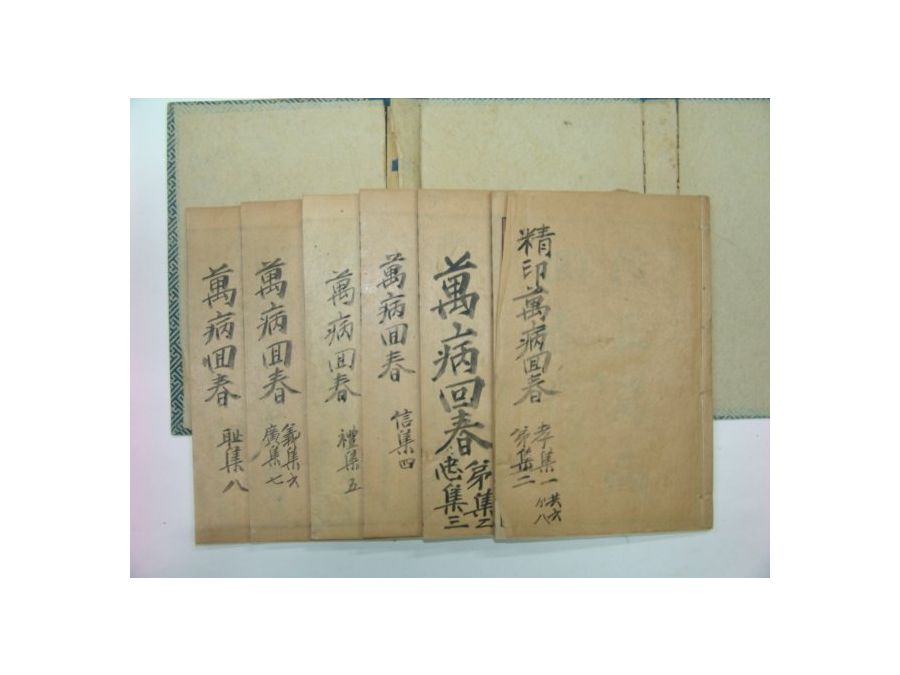 精印萬病回春
孝集一
弟集二
共六
分八
萬病回春
弟集二
忠集三
萬病回春
信集四
萬病回春
禮集五
萬病回春
義集六
廉集七
萬病回春
耻集八